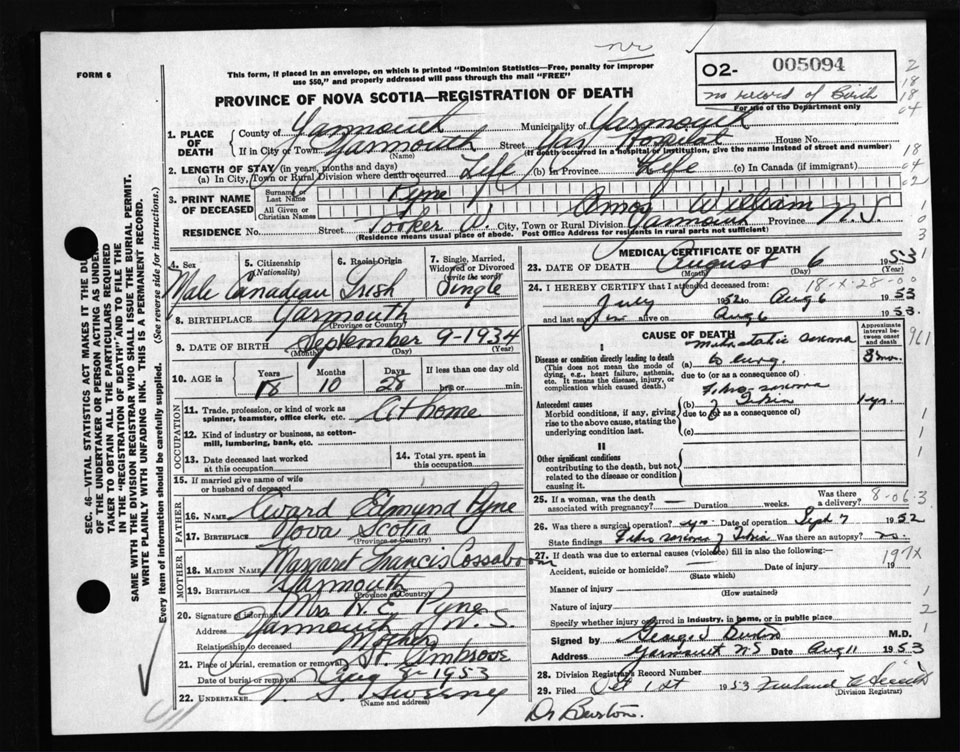 nr
FORM 6
This form, if placed in an envelope, on which is printed "Dominion Statistics—Free, penalty for improper
use $50," and properly addressed will pass through the mail "FREE"
02- 005094
no record of Birth
For use of the Department only
2
18
18
04
PROVINCE OF NOVA SCOTIA—REGISTRATION OF DEATH
1. PLACE OF DEATH
County of Yarmouth Municipality of Yarmouth
If in City or Town Yarmouth Street Yar Hospital House No.
(Name) (If death occurred in a hospital or institution, give the name instead of street and number)
18
2. LENGTH OF STAY (in years, months and days)
(a) In City, Town or Rural Division where death occurred Life (b) In Province Life (c) In Canada (if immigrant)
04
02
3. PRINT NAME OF DECEASED
Surname or Last Name Pyne
All Given or Christian Names Amos William
RESIDENCE No. Street Tooker St. City, Town or Rural Division Yarmouth Province N.S.
(Residence means usual place of abode. Post Office Address for residents in rural parts not sufficient)
1
0
3
4. Sex Male
5. Citizenship (Nationality) Canadian
6. Racial Origin Irish
7. Single, Married, Widowed or Divorced (write the word) Single
8. BIRTHPLACE Yarmouth
(Province or Country)
9. DATE OF BIRTH September 9-1934
(Month) (Day) (Year)
10. AGE in Years 18 Months 10 Days 28 If less than one day old hrs or min.
OCCUPATION
11. Trade, profession, or kind of work as spinner, teamster, office clerk, etc. At home
12. Kind of industry or business, as cotton-mill, lumbering, bank, etc.
13. Date deceased last worked at this occupation
14. Total yrs. spent in this occupation
15. If married give name of wife or husband of deceased
FATHER
16. NAME Edmund Pyne
17. BIRTHPLACE Nova Scotia
(Province or Country)
MOTHER
18. MAIDEN NAME Margaret Francis Cossaboom
19. BIRTHPLACE Yarmouth
(Province or Country)
20. Signature of informant Mrs. E. Pyne
Address Yarmouth N.S.
Relationship to deceased Mother
21. Place of burial, cremation or removal St. Ambrose
Date of burial or removal Aug 8-1953
22. UNDERTAKER V. S. Sweeney
(Name and address)
MEDICAL CERTIFICATE OF DEATH
23. DATE OF DEATH August 6 1953
(Month) (Day) (Year)
1
24. I HEREBY CERTIFY that I attended deceased from:
18-X-28-00
July 1952 to Aug 6 1953
and last saw him alive on Aug 6 1953.
CAUSE OF DEATH
Approximate interval between onset and death
961
I
Disease or condition directly leading to death
(This does not mean the mode of dying, e.g., heart failure, asthenia, etc. It means the disease, injury, or complication which caused death.)
(a) Metastatic sarcoma to lung. 8 mos.
due to (or as a consequence of)
Antecedent causes
Morbid conditions, if any, giving rise to the above cause, stating the underlying condition last.
(b) Fibro-sarcoma of Tibia 1 yr.
due to (or as a consequence of)
(c)
1
1
1
II
Other significant conditions
contributing to the death, but not related to the disease or condition causing it.
25. If a woman, was the death associated with pregnancy? — Duration weeks. Was there a delivery?
8-06-3
26. Was there a surgical operation? yes Date of operation Sept 7 1952
State findings Fibro sarcoma of Tibia Was there an autopsy? no.
27. If death was due to external causes (violence) fill in also the following:—
197X
Accident, suicide or homicide? — Date of injury 19
(State which)
Manner of injury
(How sustained)
1
Nature of injury
2
Specify whether injury occurred in industry, in home, or in public place
Signed by George Burton M.D.
1
Address Yarmouth N S Date Aug 11 1953
28. Division Registrar's Record Number
29. Filed Oct 1st 1953
(Division Registrar)
Dr Burton.
SEC. 46—VITAL STATISTICS ACT MAKES IT THE DU
OF THE UNDERTAKER OR PERSON ACTING AS UNDER
TAKER TO OBTAIN ALL THE PARTICULARS REQUIRED
IN THE "REGISTRATION OF DEATH" AND TO FILE THE
SAME WITH THE DIVISION REGISTRAR WHO SHALL ISSUE THE BURIAL PERMIT.
WRITE PLAINLY WITH UNFADING INK. THIS IS A PERMANENT RECORD.
Every item of information should be carefully supplied. (See reverse side for instructions.)